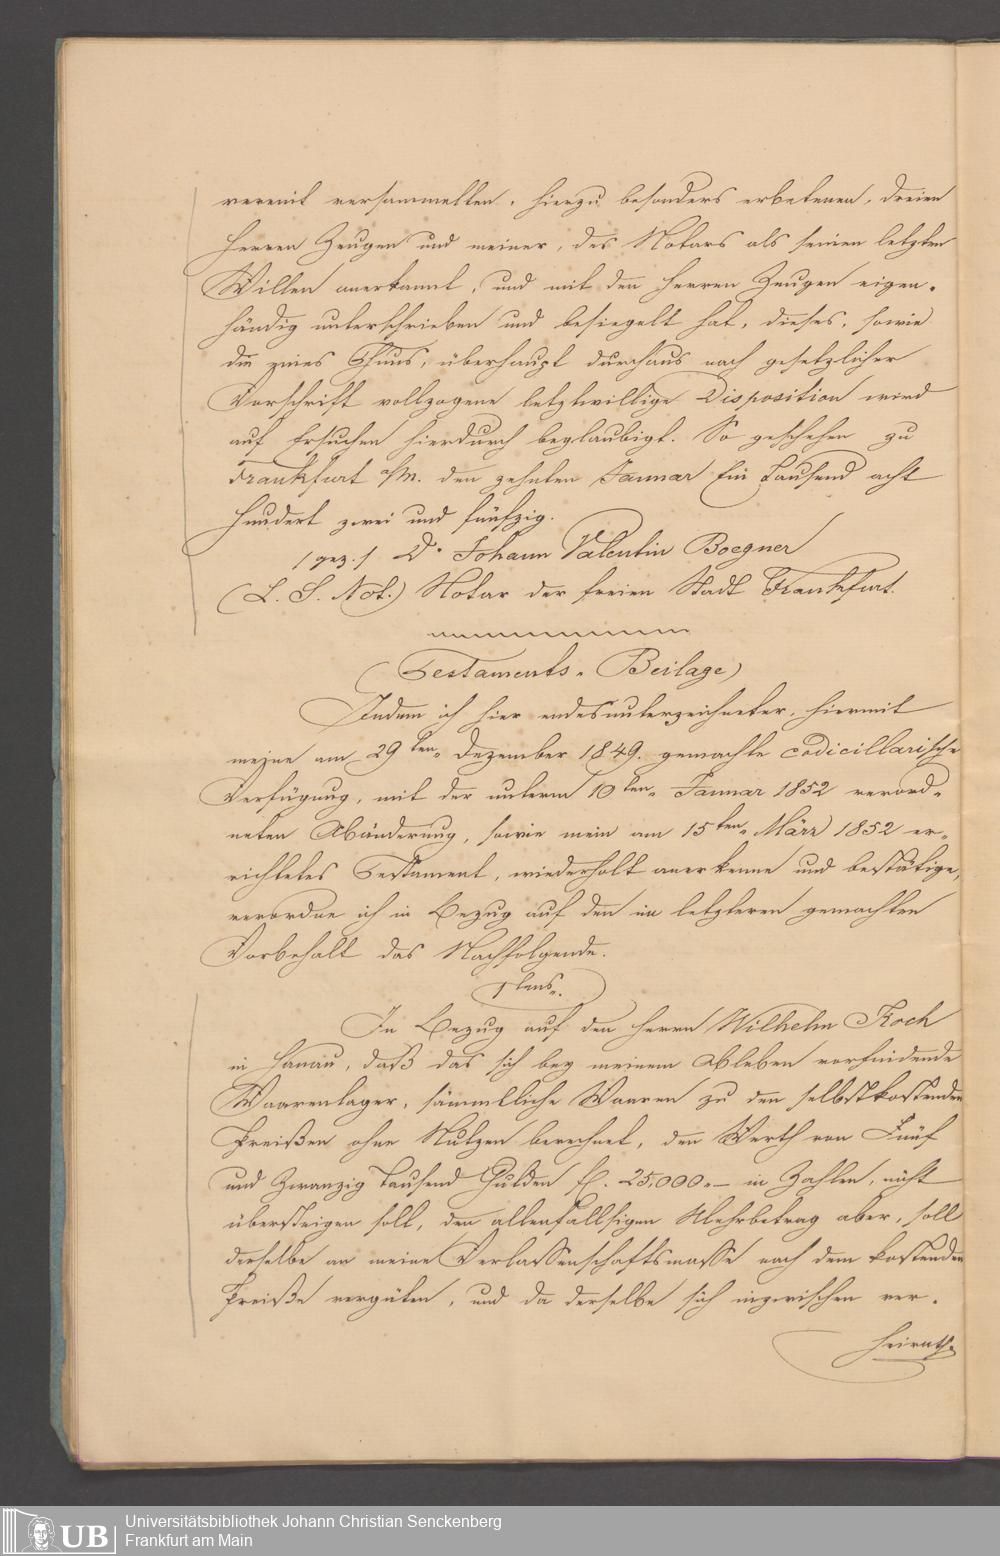 vereint versammelten, hierzu besonders erbetenen, dreien
Herren Zeugen und meiner, des Notars als seinen letzten
Willen anerkannt, und mit den Herren Zeugen eigen-
händig unterschrieben und besiegelt hat, dieses, sowie
die eines Thuns, überhaupt durchaus nach gesetzlicher
Vorschrift vollzogene letztwillige Disposition wird
auf Ersuchen hierdurch beglaubigt. So geschehen zu
Frankfurt a/M. den zehnten Januar Ein Tausend acht
hundert zwei und fünfzig.
/gez./ Dr. Johann Valentin Boegner
(L. S. Not.) Notar der freien Stadt Frankfurt.
(Testaments-Beilage)
Indem ich hier endesunterzeichneter, hiermit
meine am 29ten Dezember 1849. gemachte codicillarische
Verfügung, mit der unterm 10ten Januar 1852 verord-
neten Abänderung, sowie mein am 15ten März 1852 er-
richtetes Testament, wiederholt anerkenne und bestätige,
verordne ich in Bezug auf den im letzteren gemachten
Vorbehalt das Nachfolgende.
1tens.
In Bezug auf den Herrn Wilhelm Koch
in Hanau, daß das sich bey meinem Ableben vorfindende
Waarenlager, sämmtliche Waaren zu den selbstkostenden
Preißen ohne Nutzen berechnet, den Werth von Fünf
und Zwanzig Tausend Gulden fl. 25,000.- in Zahlen, nicht
übersteigen soll, den allenfallsigen Mehrbetrag aber, soll
derselbe an meine Verlassenschaftsmasse nach dem kostenden
Preiße vergüten, und da derselbe sich inzwischen ver-
heirath-
Universitätsbibliothek Johann Christian Senckenberg
UB Frankfurt am Main